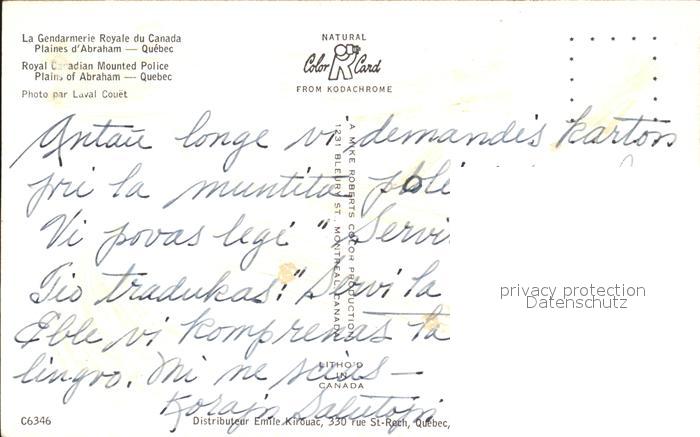 La Gendarmerie Royale du Canada
Plaines d'Abraham — Québec
Royal Canadian Mounted Police
Plains of Abraham — Quebec
Photo par Laval Couët
NATURAL
Color Card
FROM KODACHROME
Antaŭ longe vi demandis karton
pri la muntita
Vi povas legi "Servi
Tio tradukas: "Servi la
Eble vi komprenas la
lingvo. Mi ne scias —
Korajn Salutojn
A MIKE ROBERTS COLOR PRODUCTION
1231 BLEURY ST. MONTREAL, CANADA
LITHO'D
IN
CANADA
privacy protection
Datenschutz
C6346
Distributeur Emile Kirouac, 330 rue St-Roch, Québec,